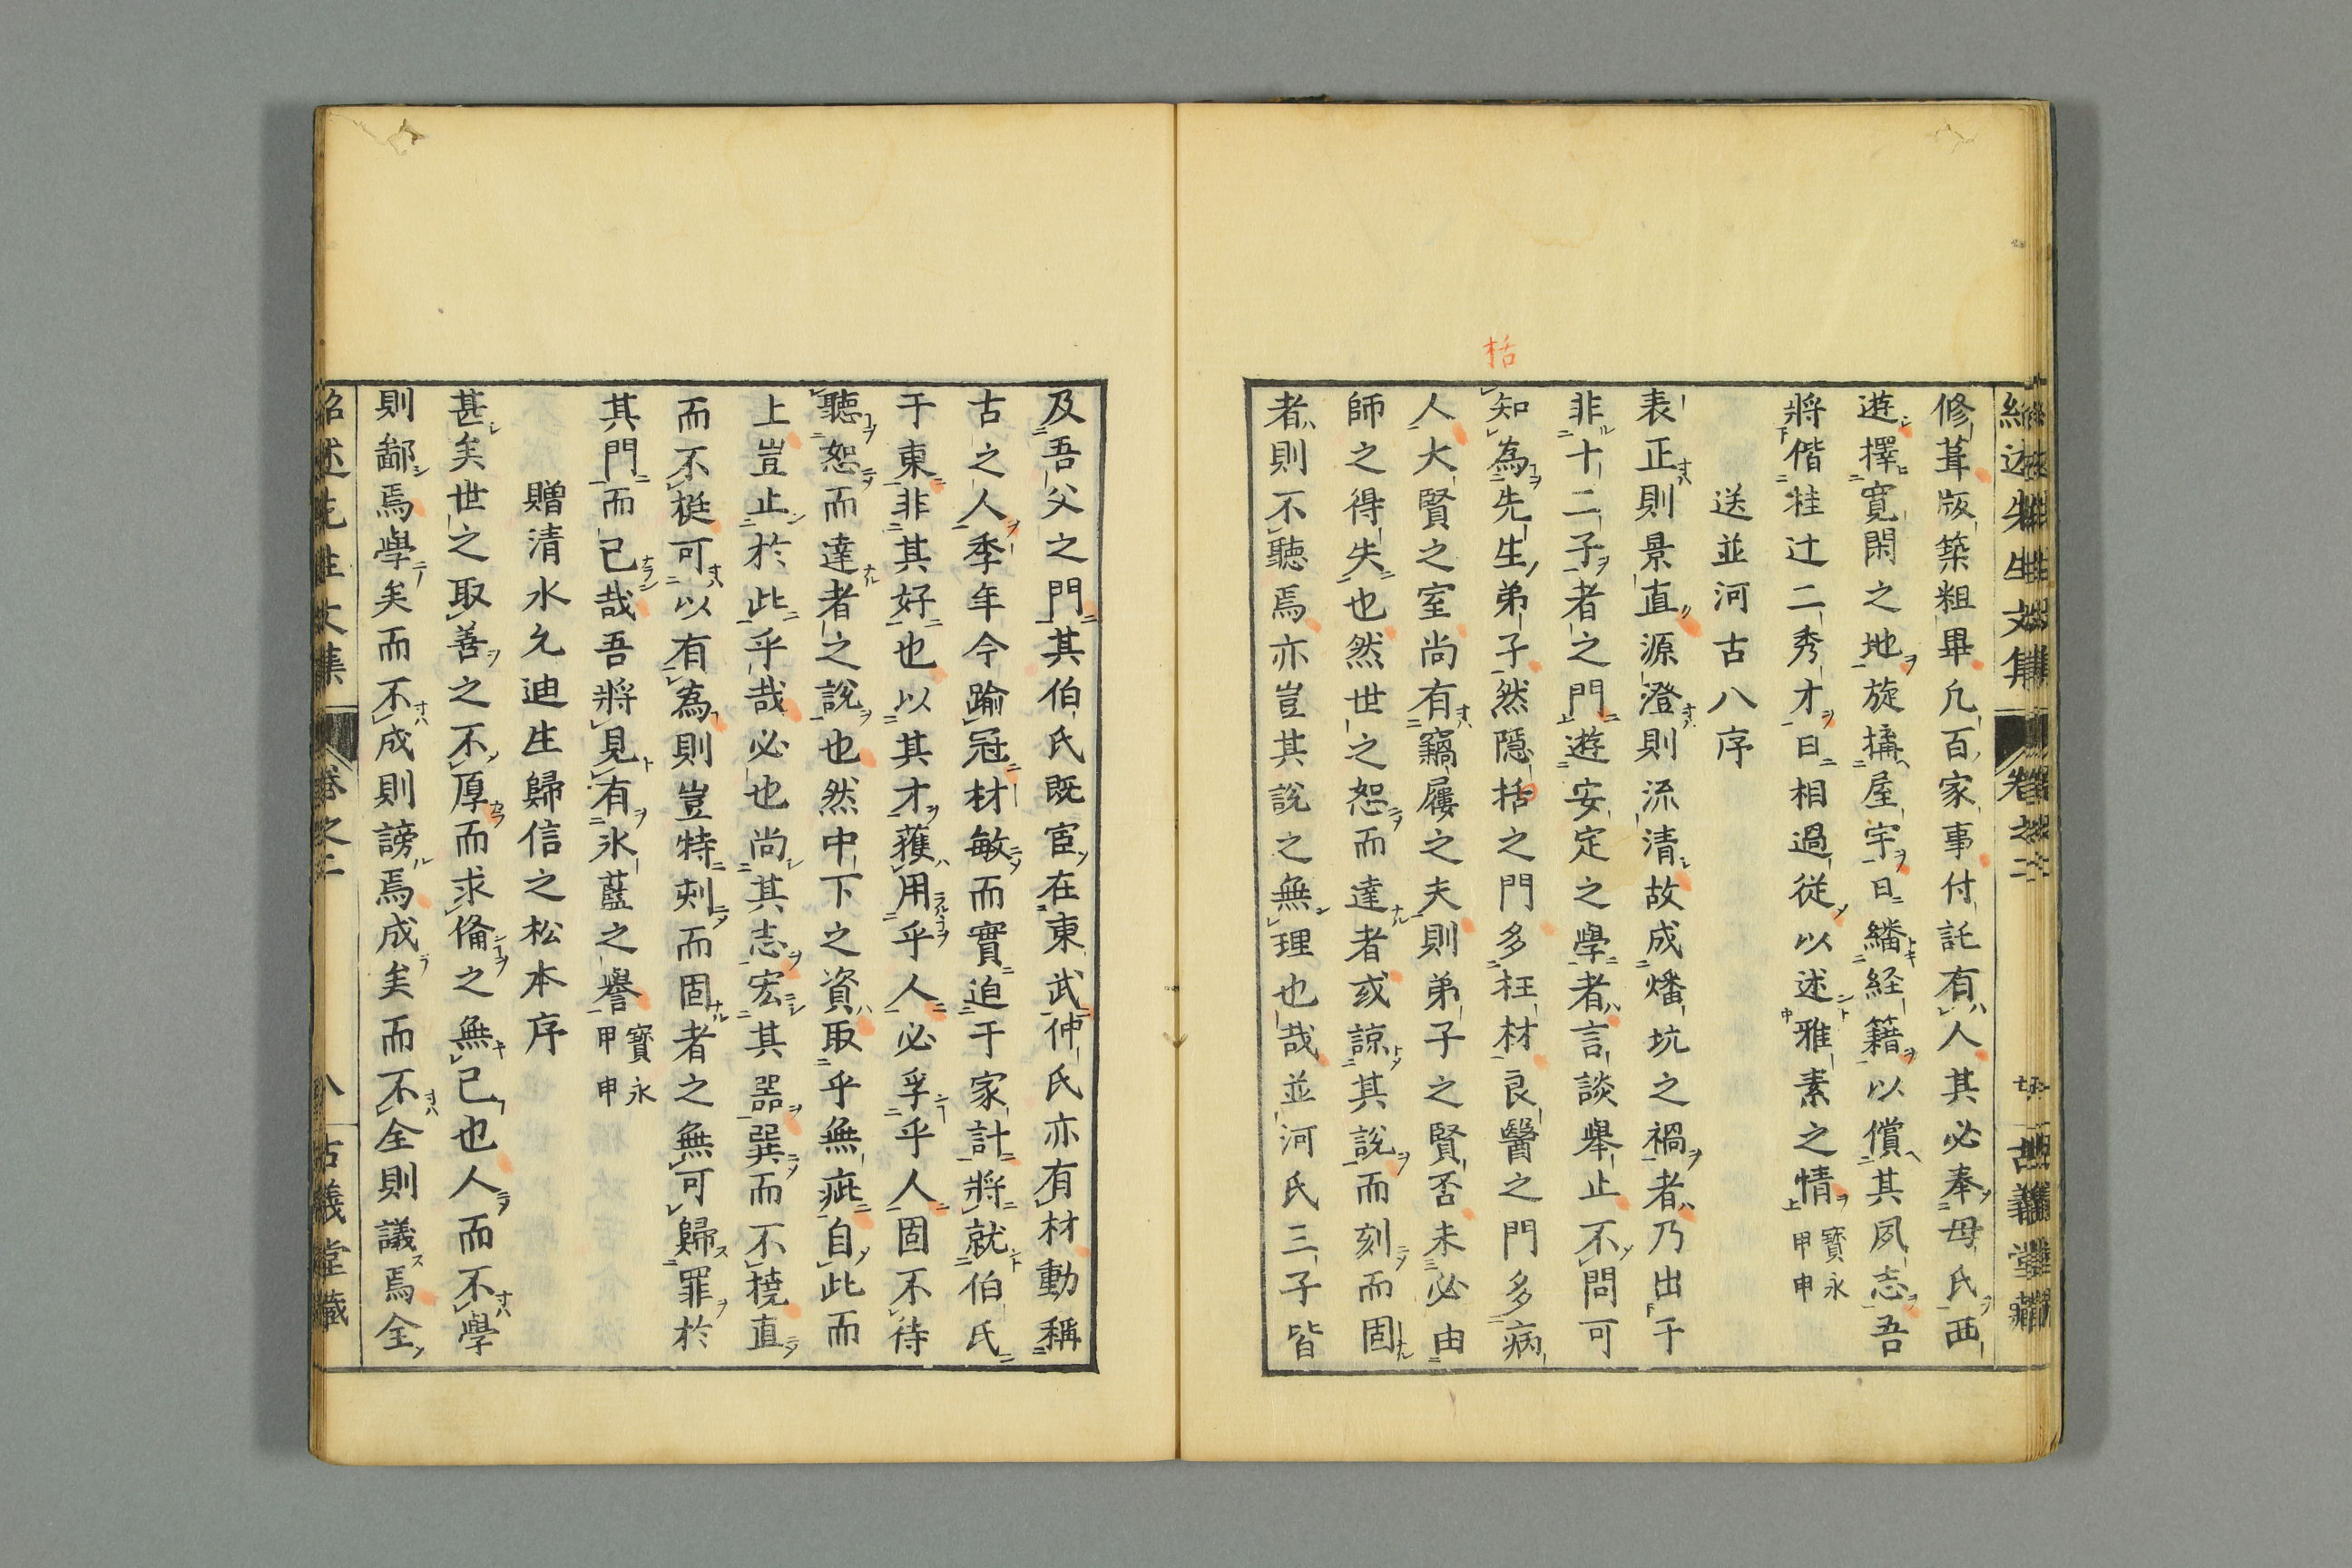 修葺版築粗畢凡百家事付託有人其必奉母氏西
遊擇寬閑之地旋搆屋宇日繙経籍以償其夙志吾
將偕桂辻二秀才日相過従以述雅素之情寳永甲申
送並河古八序
表正則景直源澄則流清故成燔坑之禍者乃出于
非十二子者之門遊安定之學者言談舉止不問可
知為先生弟子然隱括之門多枉材良醫之門多病
人大賢之室尚有竊屨之夫則弟子之賢否未必由
師之得失也然世之恕而達者或諒其說而刻而固
者則不聽焉亦豈其說之無理也哉並河氏三子皆
栝
及吾父之門其伯氏既宦在東武仲氏亦有材動稱
古之人季年今踰冠材敏而實迫于家計將就伯氏
于東非其好也以其才獲用乎人必孚乎人固不待
聽恕而達者之說也然中下之資取乎無疵自此而
上豈止於此乎哉必也尚其志宏其器巽而不撓直
而不挺可以有為則豈特刾而固者之無可歸罪於
其門而已哉吾將見有氷藍之譽寳永甲申
贈清水允迪生歸信之松本序
甚矣世之取善之不厚而求偹之無已也人而不學
則鄙焉學矣而不成則謗焉成矣而不全則議焉全
紹述先生文集 卷之二 八 古義堂藏